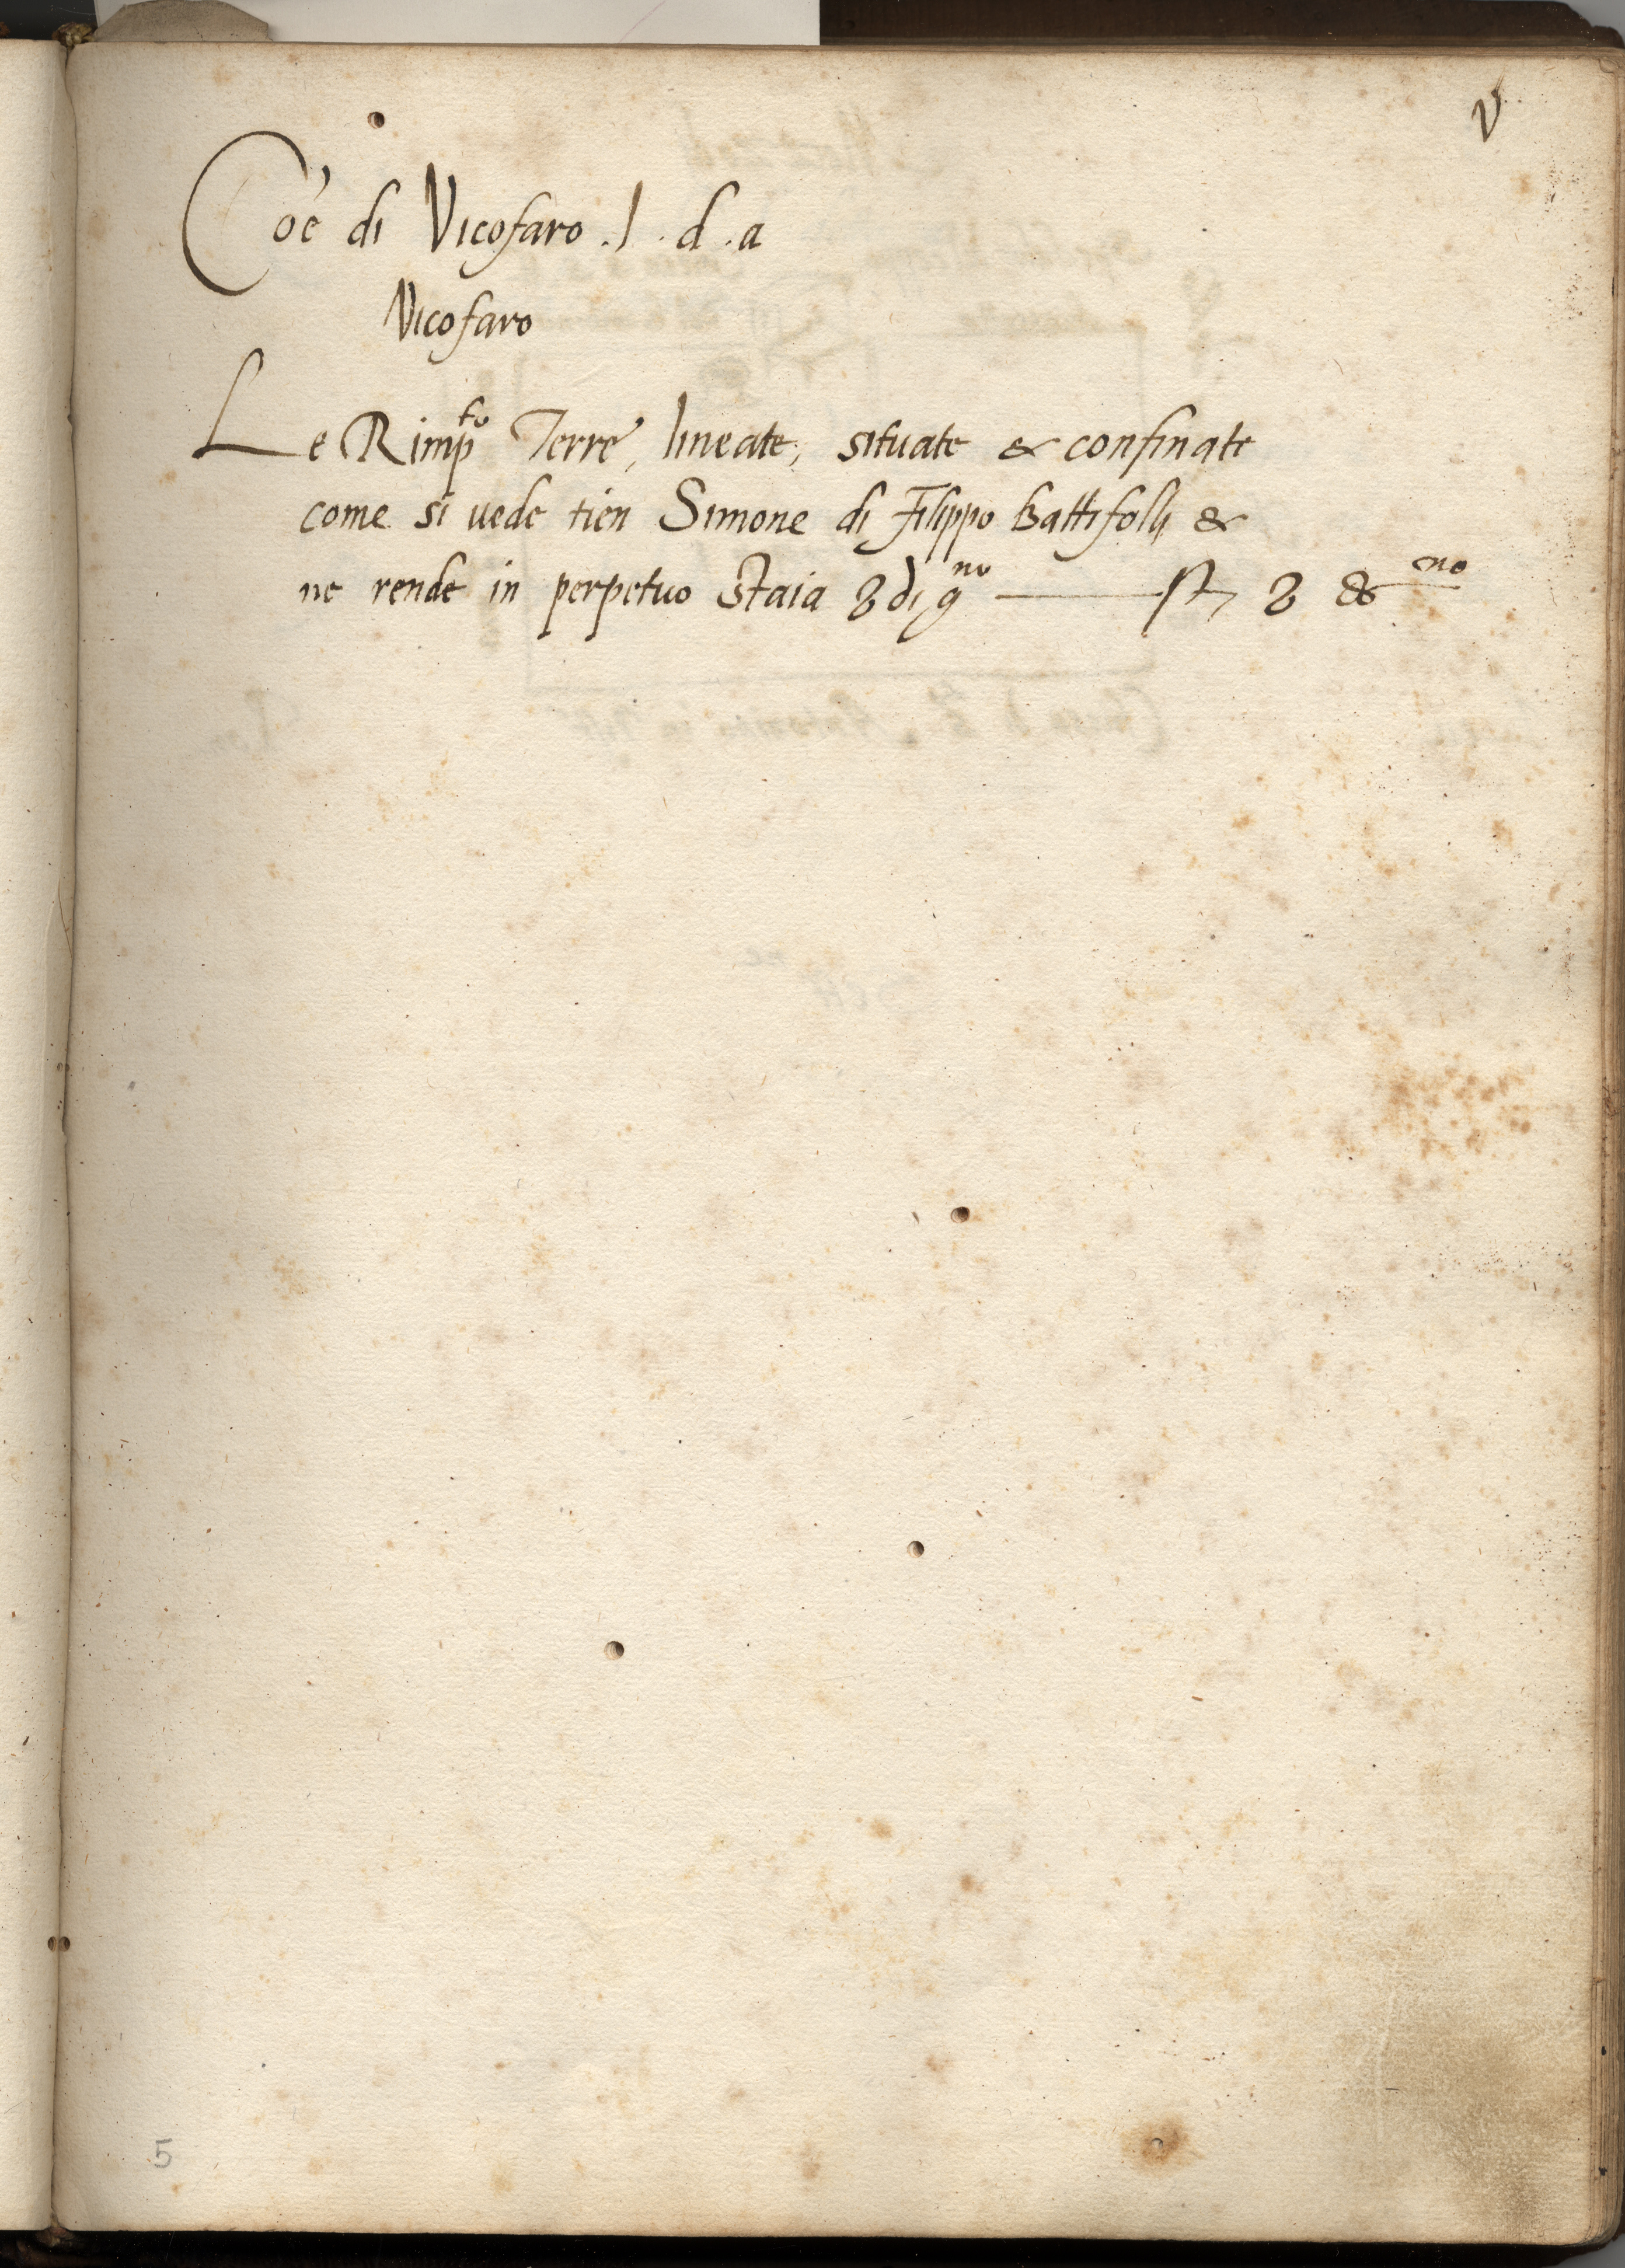 V
Coe' di Vicofaro .l. d. a
Vicofaro
Le Rimp.to Terre, lineate, situate & confinate
come si uede tien Simone di Filippo Battifolli &
ne rende in perpetuo Staia 8 di g.no st. 8 no
5